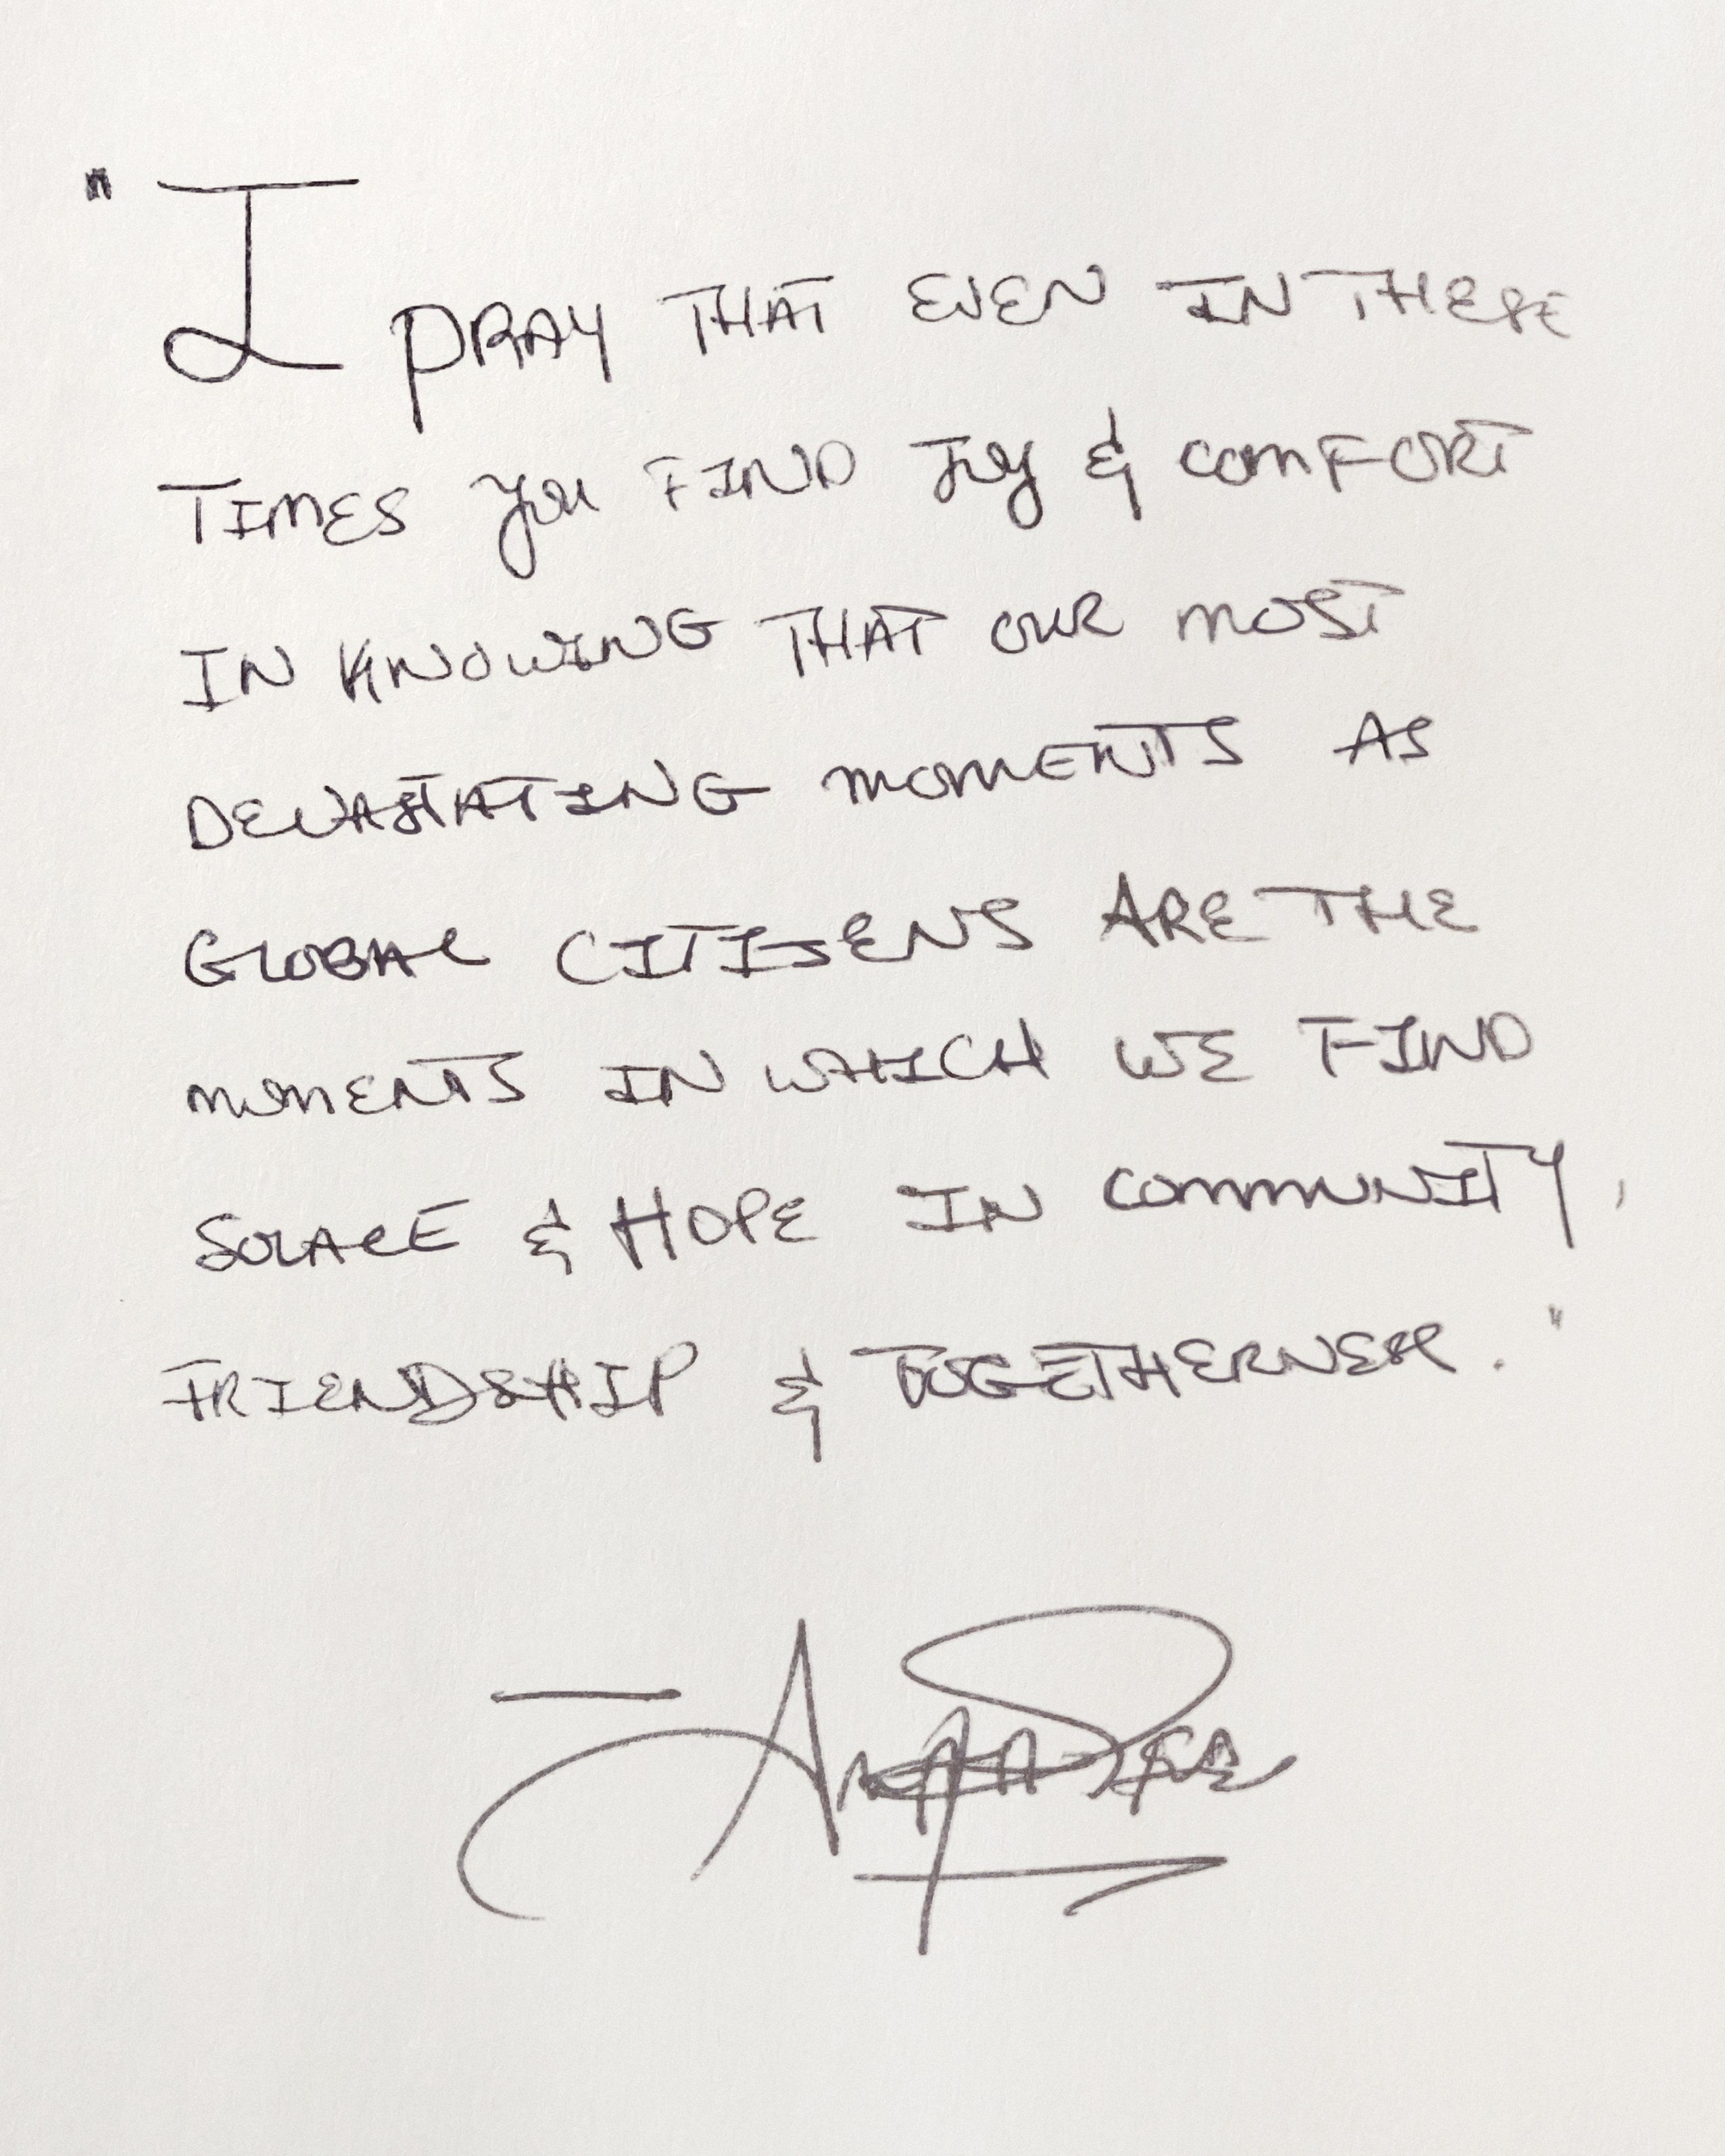 "I PRAY THAT EVEN IN THESE
TIMES you FIND JOY & COMFORT
IN KNOWING THAT OUR MOST
DEVASTATING MOMENTS AS
GLOBAL CITIZENS ARE THE
MOMENTS IN WHICH WE FIND
SOLACE & HOPE IN COMMUNITY,
FRIENDSHIP & TOGETHERNESS."